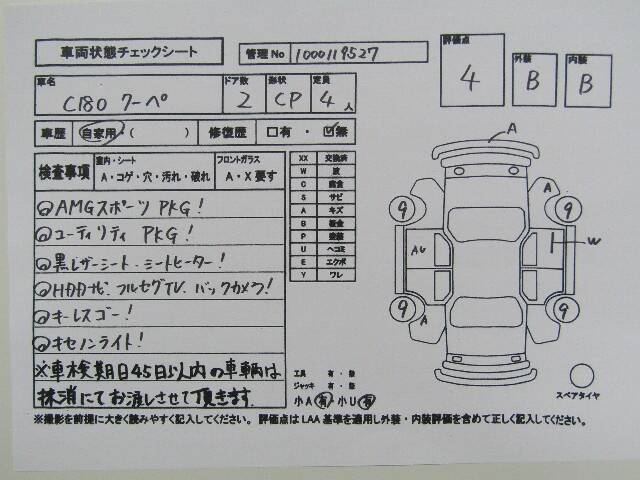 車両状態チェックシート
管理No 1000119527
評価点 4
外装 B
内装 B
車名 C180 クーペ
ドア数 2
形状 CP
定員 4人
車歴 自家用・( ) 修復歴 □有・☑無
検査事項
室内・シート
A・コゲ・穴・汚れ・破れ
フロントガラス
A・X要す
◎AMGスポーツ PKG!
◎ユーティリティ PKG!
◎黒レザーシート・シートヒーター!
◎HDDナビ・フルセグTV・バックカメラ!
◎キーレスゴー!
◎キセノンライト!
※車検期日45日以内の車輌は
抹消にてお渡しさせて頂きます
XX 交換済
W 波
C 腐食
S サビ
A キズ
B 板金
P 塗装
U ヘコミ
E エクボ
Y ワレ
工具 有・無
ジャッキ 有・無
小A 有 小U 有
A
A
9
9
A6
W
9
9
A
スペアタイヤ
※撮影を前提に大きく読みやすく記入してください。評価点はLAA基準を適用し外装・内装評価を含めて正しく記入してください。